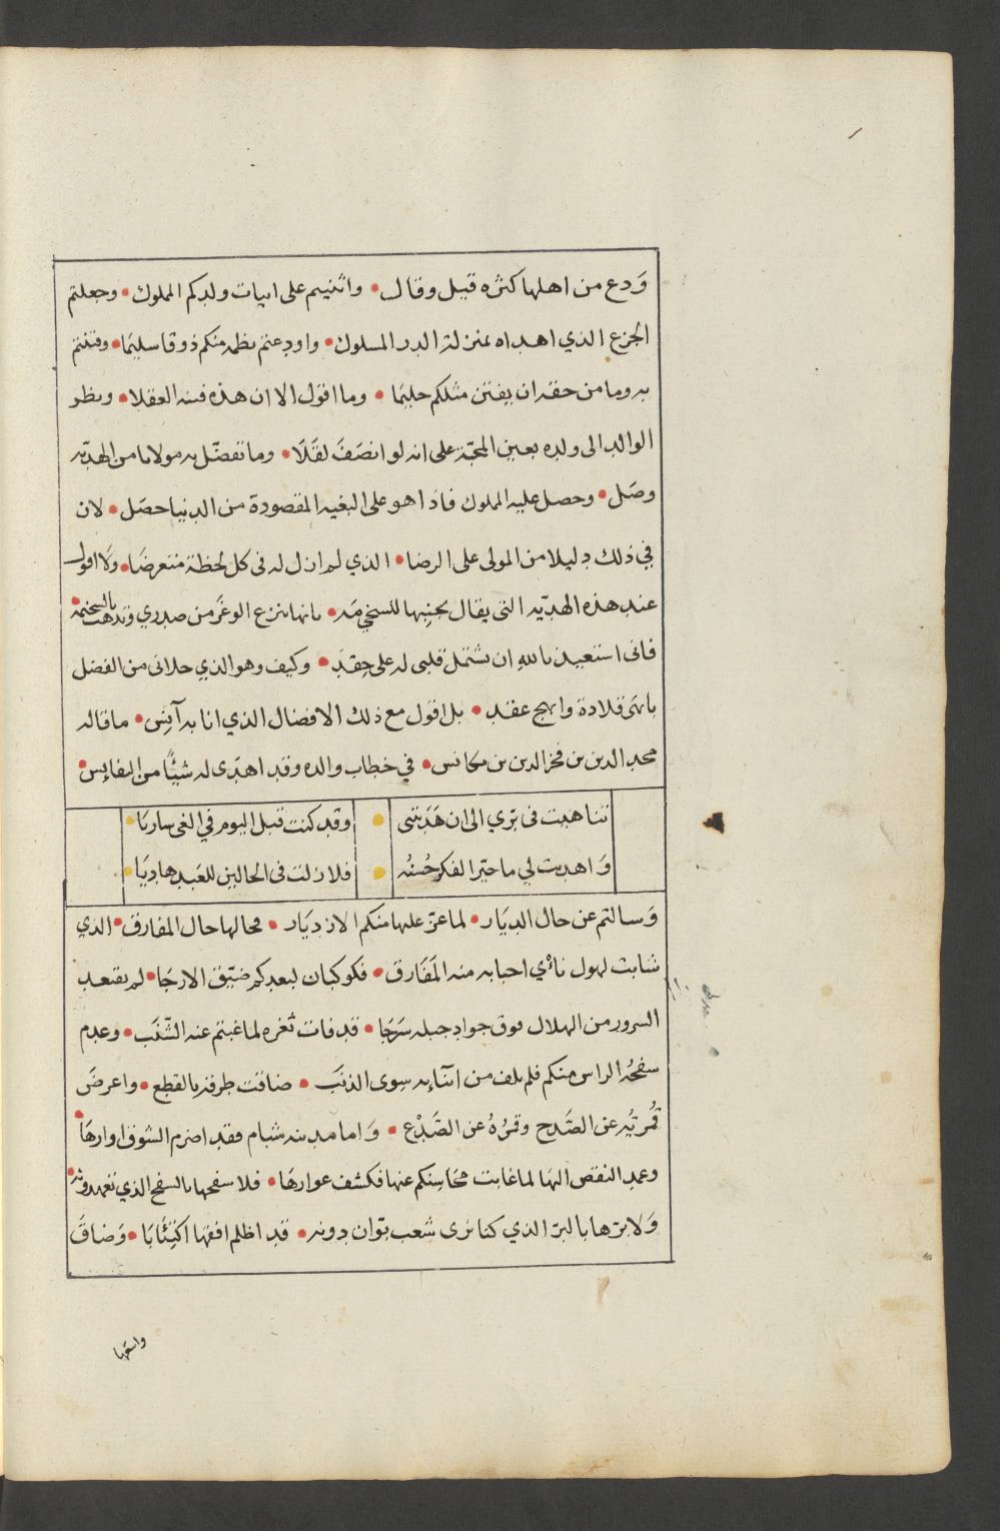 وَدع من اهلها كثره قيل وقال • واثنيتم على ابيات ولدكم المملوك • وجعلتم
الجزع الذي اهداه بمنزلة الدر المسلوك • واودعتم نظمه منكم ذوقا سليمًا • وفتنتم
به وما من حقه ان يفتن مثلكم حليمًا • وما اقول الا ان هذه فتنه العقلا • ونظر
الوالد الى ولده بعين المحبّة على انه لو انصَفَ لقَلَا • وما تفضّل به مولانا من الهديّه
وصَل • وحصل عليه المملوك فاذا هو على البغيه المقصودة من الدنيا حصَل • لان
في ذلك دليلا من المولى على الرضا • الذي لم ازل له فى كل لحظة متعرضَا • ولا اقول
عند هذه الهديّه التى يقال بجنبها للسخيمَه • بانها تنزع الوغَر من صدري وتذهب بالسخيمه •
فانى استعيذ بالله ان يشتمل قلبى له على حِقد • وكيف وهو الذي حلانى من الفضل
بابهَى قلادة وابهج عقد • بل اقول مع ذلك الافضال الذي انا به آنِس • ما قاله
مجد الدين بن فخر الدين بن مكانس • في خطاب والده وقد اهدى له شيئًا من النفايس •
تناهيت فى بري الى ان هَدَيتنى • وقد كنت قبل اليوم في الغى ساريَا •
وَاهديت لي ما حيّر الفكر حُسنُه • فلا زلت فى الحالين للعَبد هاديَا •
وَسالتم عن حال الديَار • لما عزّ عليها منكم الازديَار • فحالها حال المفارق • الذي
شابت لهول نأي احبابه منه المَفَارق • فكوكبان لبعدكم ضيّق الارجَا • لم يقتعد
السرور من الهلال فوق جواد جبله سَرجَا • قد فات ثغره لما غبتم عنه الشّنَب • وعدم
سفحُه الراس منكم فلم يلف من اتنَايه سِوى الذنَب • ضاقت طرفه بالقطع • واعرضَ
قُمريُّه عن الصَّدح وقمرُهُ عن الصَّدْع • وَاما مدينه شبام فقد اضرم الشوق اوارهَا •
وعمد النقص اليها لما غابت محَاسِنكم عنها فكشف عوارهَا • فلا سفحها بالسفح الذي تعهدونه •
وَلا برّها بالبرّ الذي كنا نرى شعب بَوّان دونه • قد اظلم افقها اكتِئَابَا • وَضاقَ